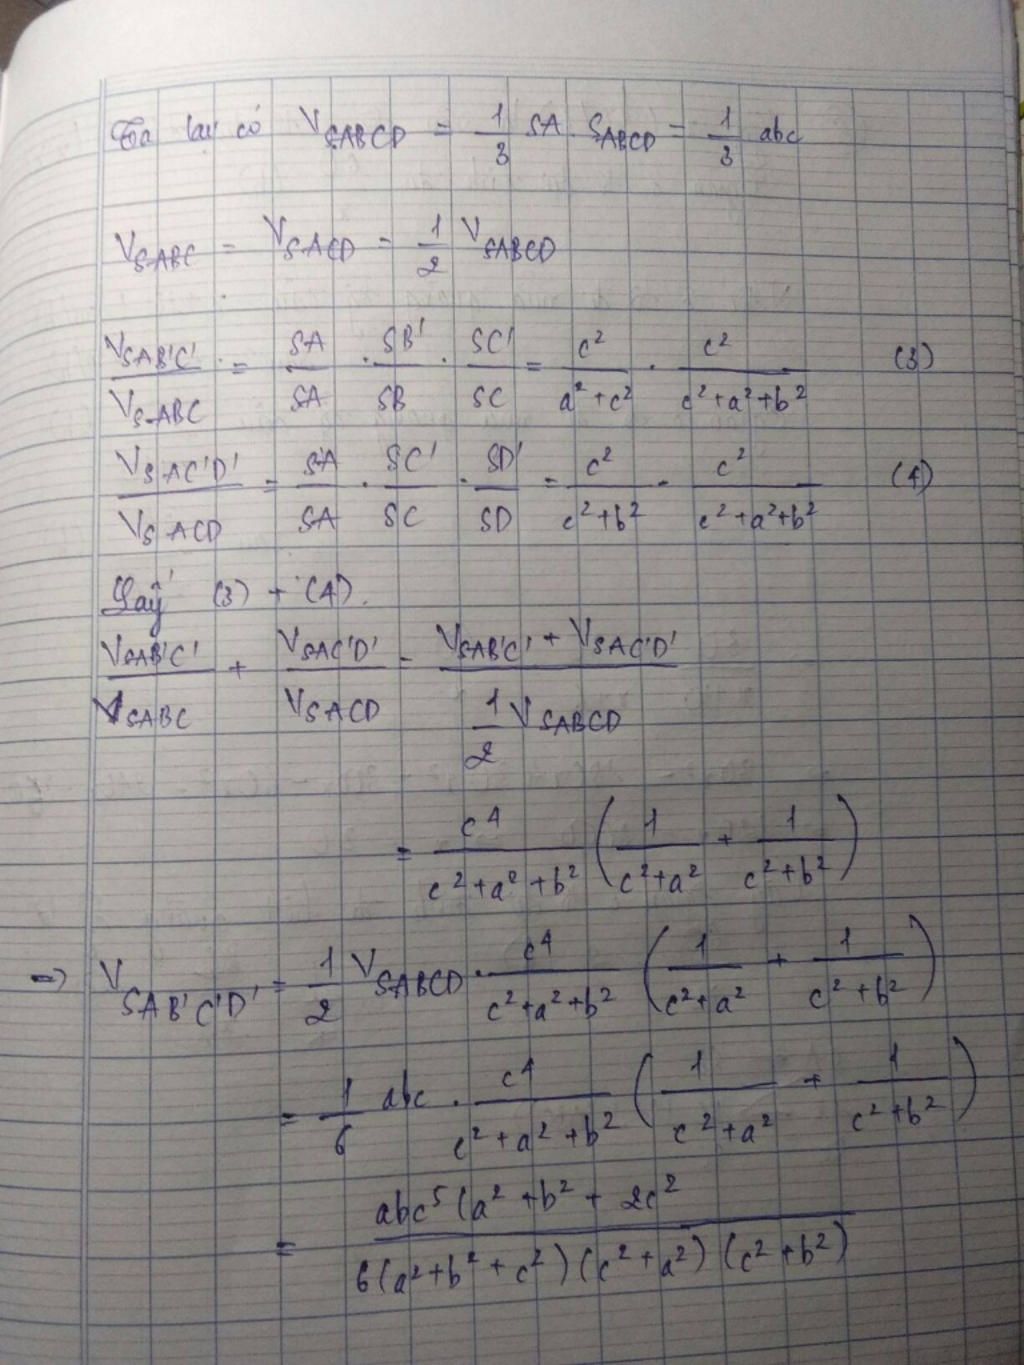 Ta lại có V_SABCD = 1/3 SA . S_ABCD = 1/3 abc
V_SABC = V_SACD = 1/2 V_SABCD
V_SAB'C' / V_SABC = SA/SA . SB'/SB . SC'/SC = c²/(a²+c²) . c²/(c²+a²+b²) (3)
V_SAC'D' / V_SACD = SA/SA . SC'/SC . SD'/SD = c²/(c²+b²) . c²/(c²+a²+b²) (4)
Lấy (3) + (4).
V_SAB'C' / V_SABC + V_SAC'D' / V_SACD = (V_SAB'C' + V_SAC'D') / (1/2 V_SABCD)
= c⁴/(c²+a²+b²) (1/(c²+a²) + 1/(c²+b²))
=> V_SAB'C'D' = 1/2 V_SABCD . c⁴/(c²+a²+b²) (1/(c²+a²) + 1/(c²+b²))
= 1/6 abc . c⁴/(c²+a²+b²) (1/(c²+a²) + 1/(c²+b²))
= abc⁵(a²+b²+2c² / 6(a²+b²+c²)(c²+a²)(c²+b²)